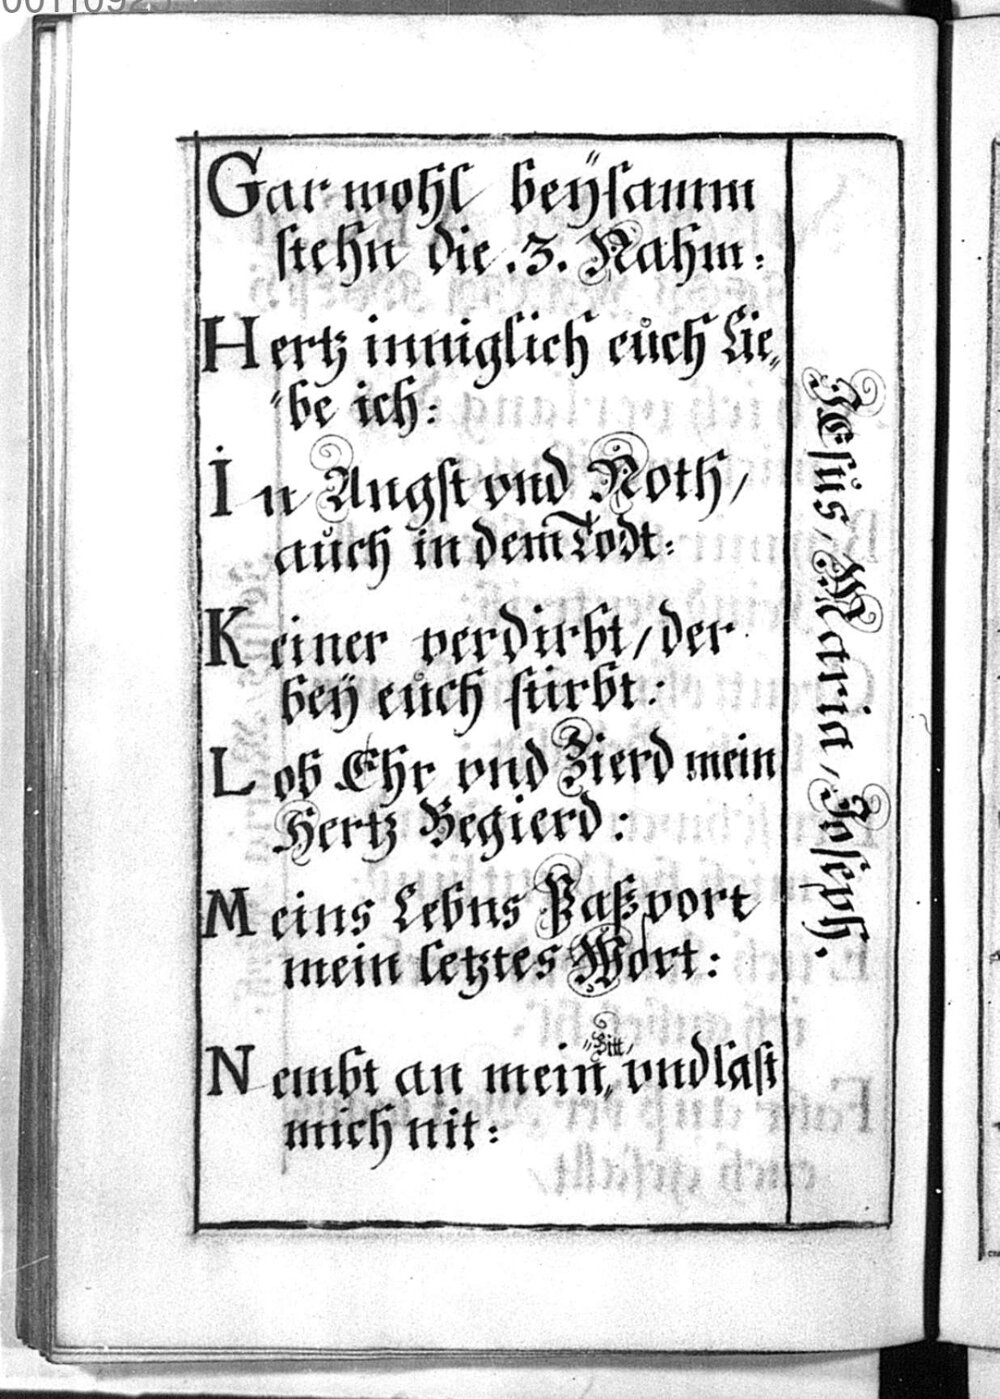 Gar wohl beÿsamm
stehn die .3. Nahm:
Hertz inniglich eůch Lie„
„be ich:
In Angst vnd Noth /
aůch in dem Todt:
Keiner verdirbt / der
beÿ eůch stirbt:
Lob Ehr vnd Zierd mein
Hertz Begierd:
Meins Lebns Paßport
mein letztes Wort:
„Bitt/
Nembt an mein„ vnd last
mich nit:
JEsůs / Maria / Joseph.